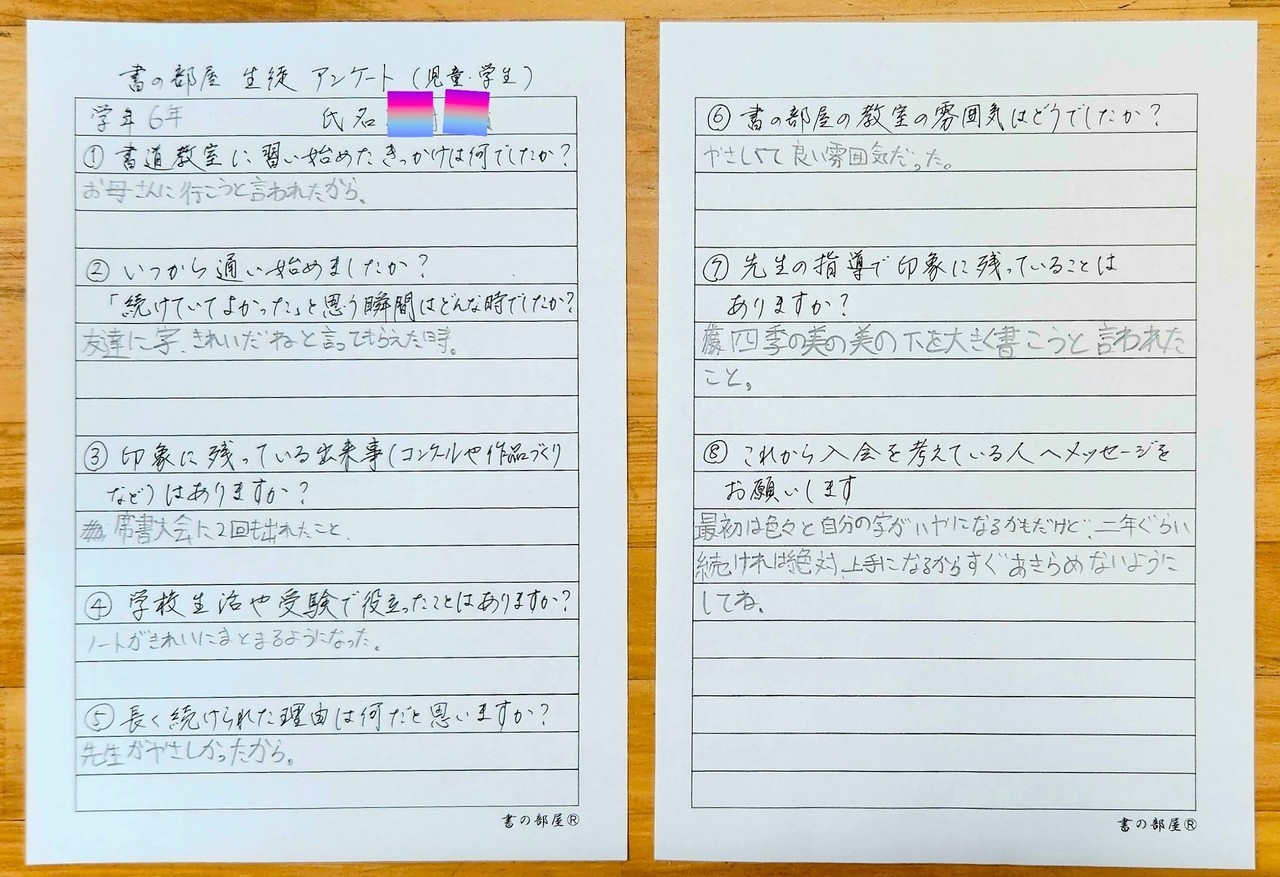 書の部屋 生徒 アンケート (児童・学生)
学年 6年 氏名
① 書道教室に習い始めたきっかけは何でしたか?
お母さんに行こうと言われたから。
② いつから通い始めましたか?
「続けていてよかった」と思う瞬間はどんな時でしたか?
友達に字、きれいだねと言ってもらえた時。
③ 印象に残っている出来事(コンクールや作品づくり
など)はありますか?
席書大会に2回も出れたこと.
④ 学校生活や受験で役立ったことはありますか?
ノートがきれいにまとまるようになった。
⑤ 長く続けられた理由は何だと思いますか?
先生がやさしかったから。
書の部屋®
⑥ 書の部屋の教室の雰囲気はどうでしたか?
やさしくて良い雰囲気だった。
⑦ 先生の指導で印象に残っていることは
ありますか?
四季の美の美の下を大きく書こうと言われた
こと。
⑧ これから入会を考えている人へメッセージを
お願いします
最初は色々と自分の字がいやになるかもだけど、二年ぐらい
続ければ絶対、上手になるからすぐあきらめないように
してね。
書の部屋®